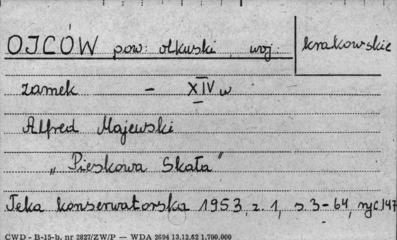 OJCÓW pow: olkuski, woj: krakowskie
zamek - XIV w
Alfred Majewski
„Pieskowa Skała"
Teka konserwatorska 1953, z. 1, s. 3-64, ryc 147
CWD - B-15-b, nr 2827/ZW/P — WDA 2694 13.12.62 1.700.000